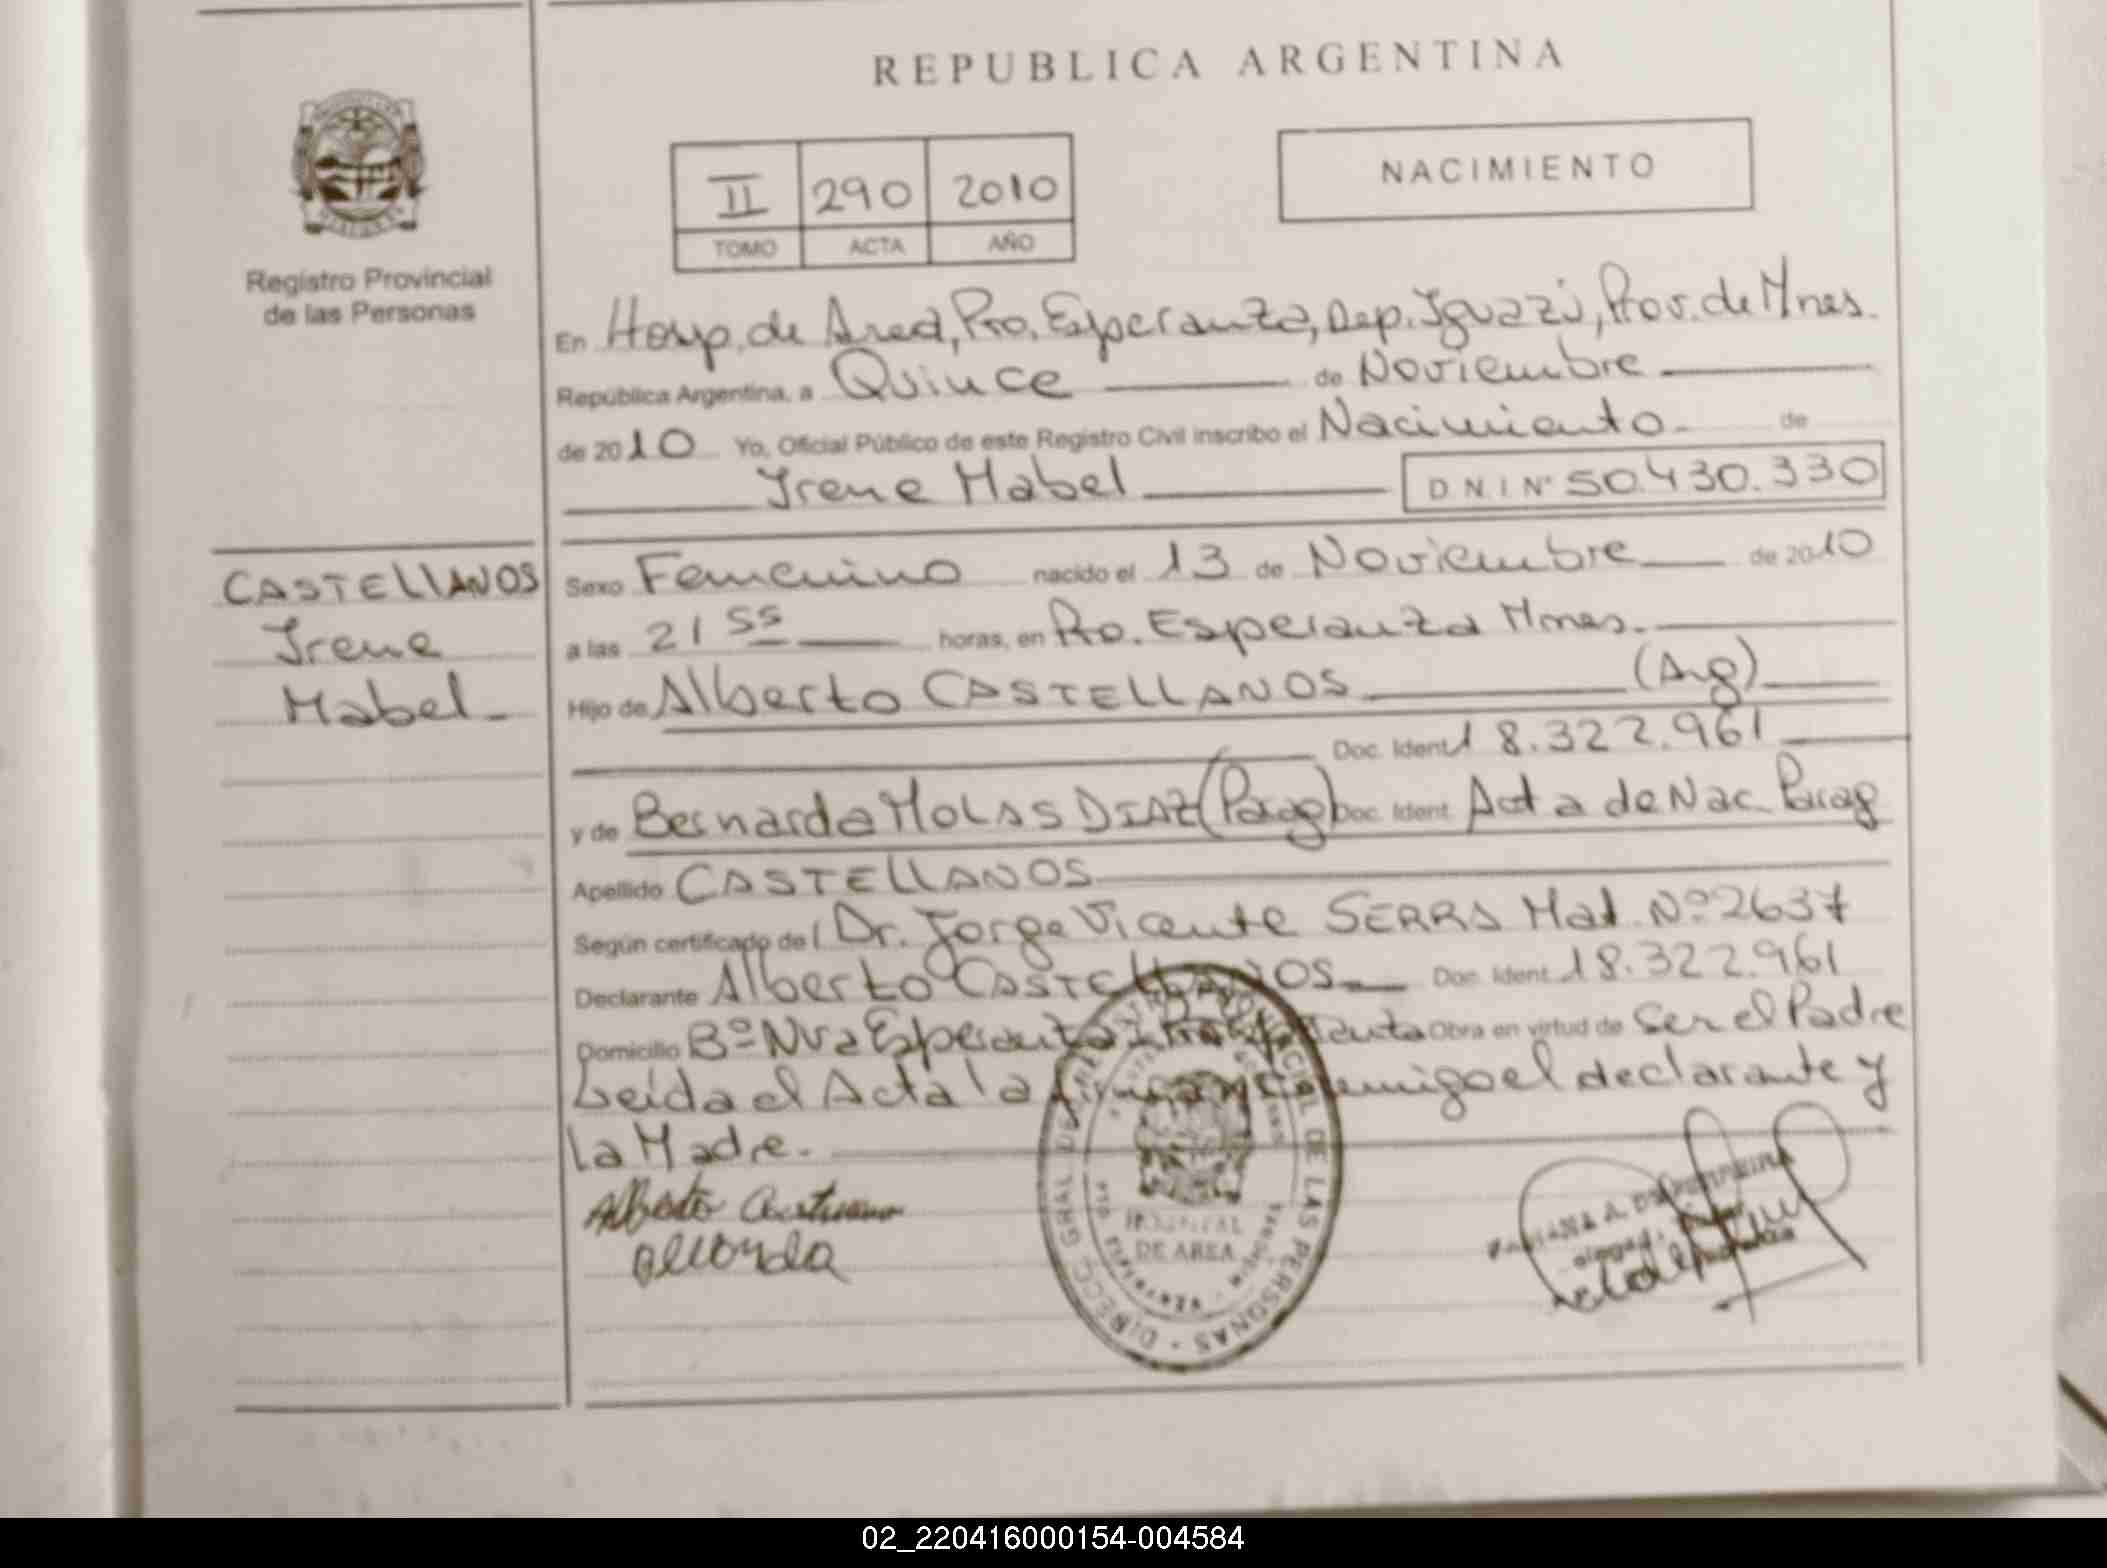 REPUBLICA ARGENTINA
II 290 2010
TOMO ACTA AÑO
NACIMIENTO
Registro Provincial
de las Personas
CASTELLANOS
Irene
Mabel
En Hosp. de Area, Pto. Esperanza, Dep. Iguazú, Prov. de Mnes.
República Argentina, a Quince de Noviembre
de 2010 Yo, Oficial Público de este Registro Civil inscribo el Nacimiento de
Irene Mabel D N I Nº 50.430.330
Sexo Femenino nacido el 13 de Noviembre de 2010
a las 21 55 horas, en Pto. Esperanza Mnes.
Hijo de Alberto CASTELLANOS (Arg)
Doc. Ident 18.322.961
y de Bernarda MOLAS DIAZ (Parag) Doc. Ident. Acta de Nac. Parag
Apellido CASTELLANOS
Según certificado del Dr. Jorge Vicente SERRA Mat. Nº 2637
Declarante Alberto CASTELLANOS Doc. Ident. 18.322.961
Domicilio Bº Nva Esperanza Obra en virtud de Ser el Padre
Leída el Acta la firman conmigo el declarante y
la Madre.
Alberto
DIRECC. GRAL. DE LAS PERSONAS
HOSPITAL
DE AREA
02_220416000154-004584